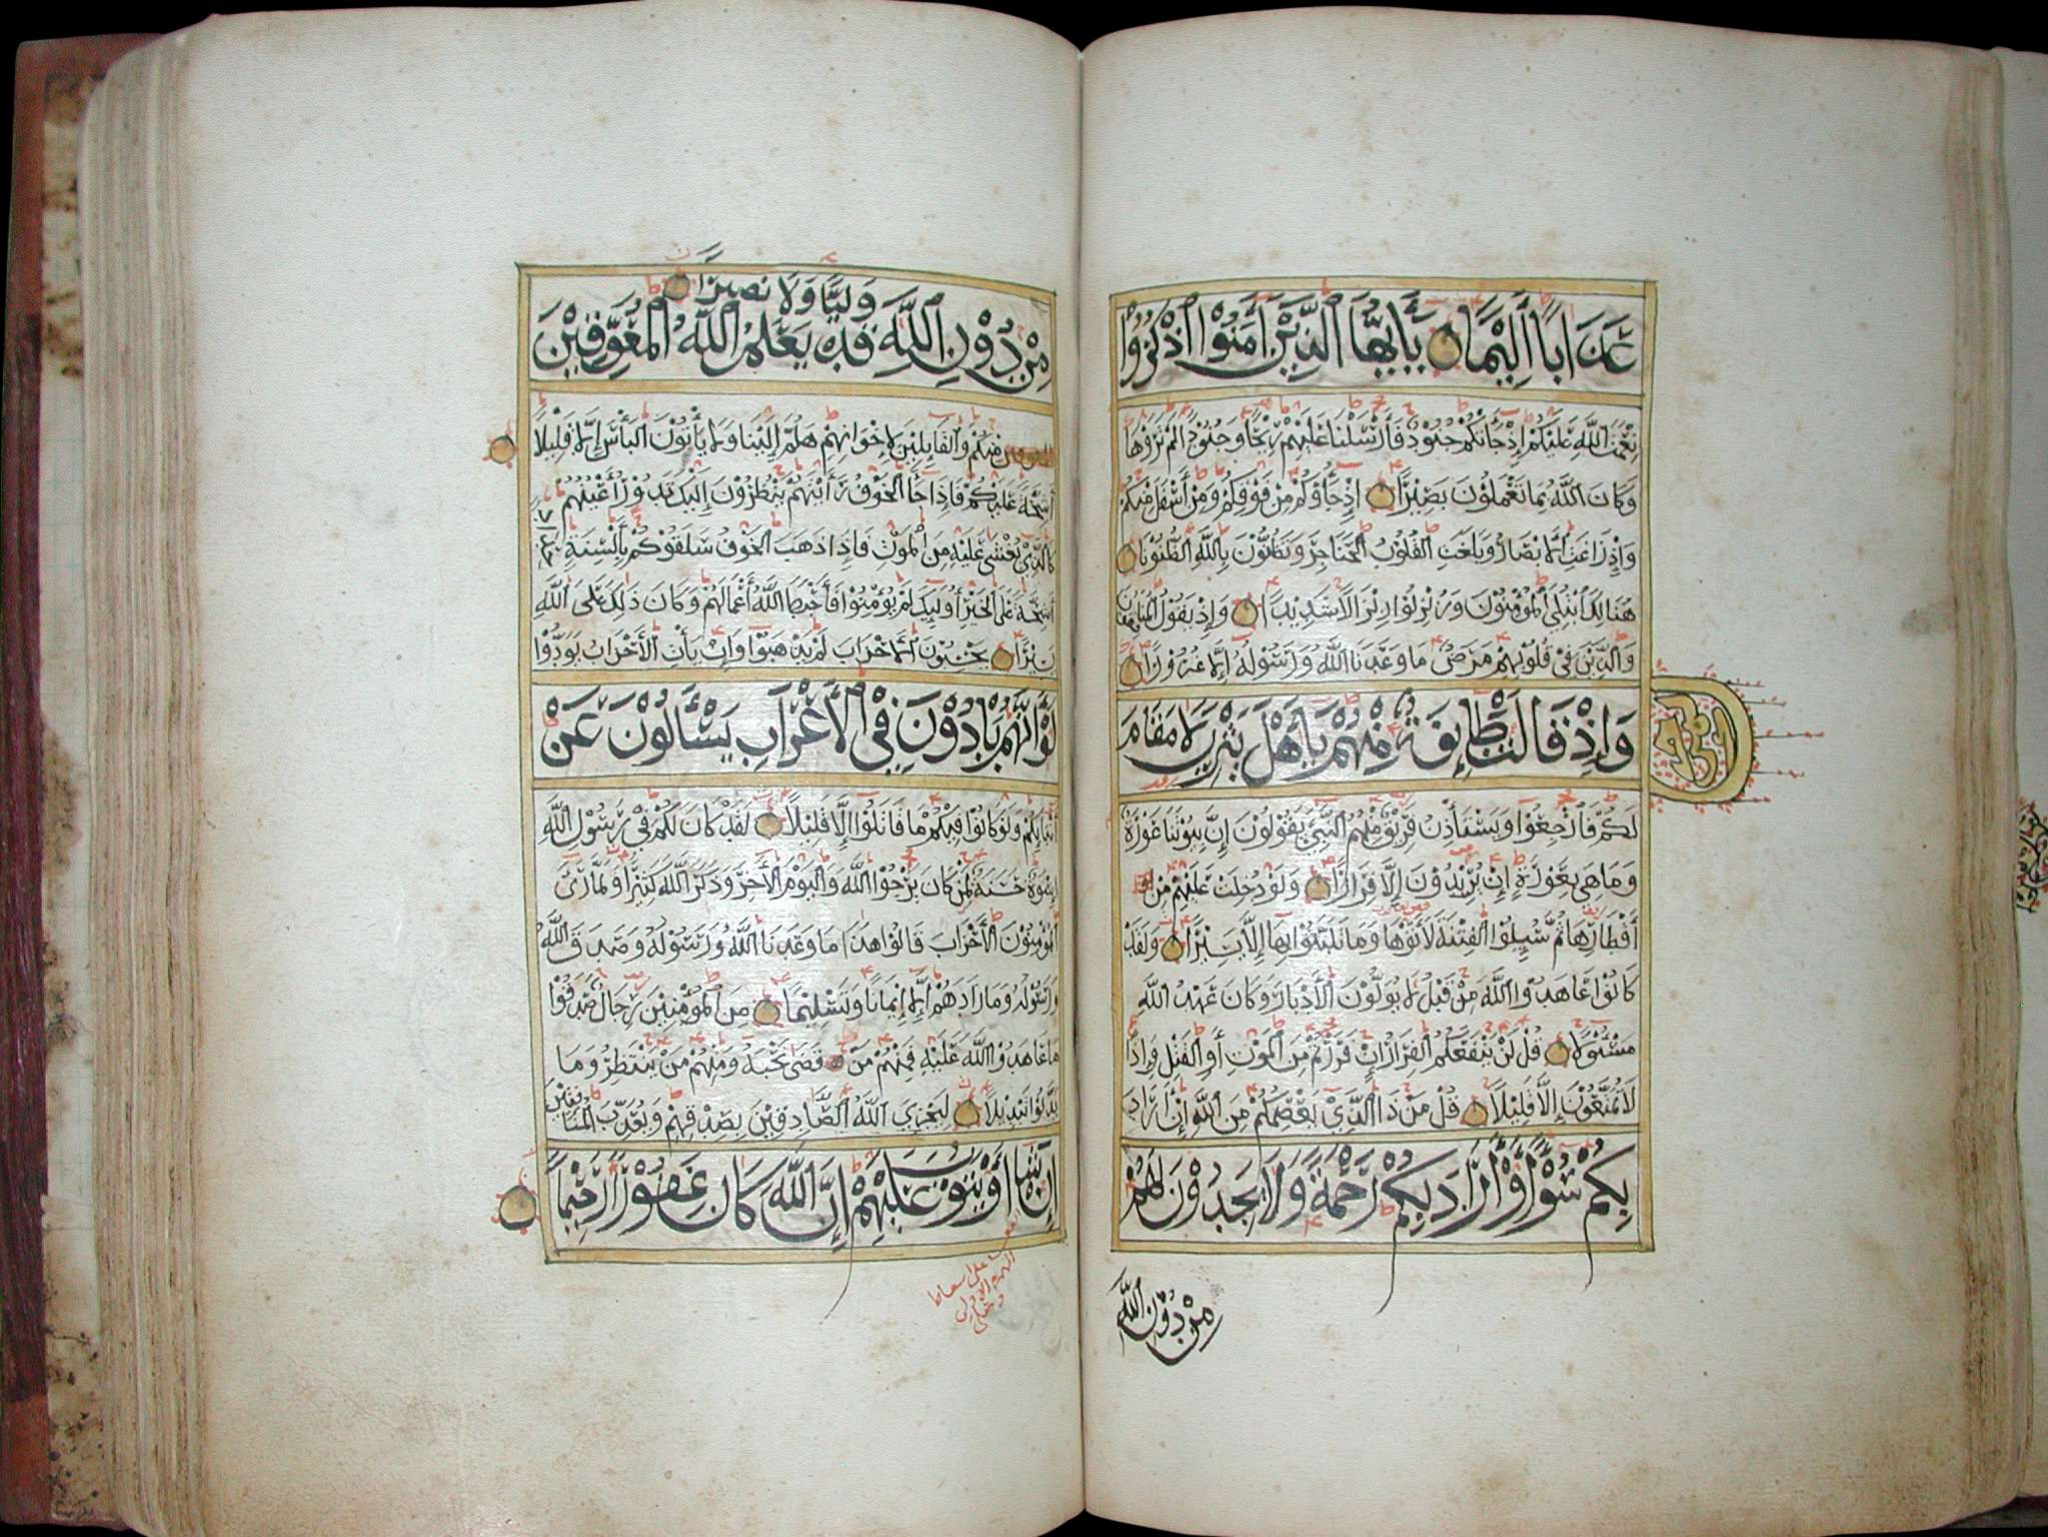 عَذَابًا أَلِيمًا يَا أَيُّهَا الَّذِينَ آمَنُوا اذْكُرُوا
نِعْمَتَ اللَّهِ عَلَيْكُمْ إِذْ جَاءَتْكُمْ جُنُودٌ فَأَرْسَلْنَا عَلَيْهِمْ رِيحًا وَجُنُودًا لَمْ تَرَوْهَا
وَكَانَ اللَّهُ بِمَا تَعْمَلُونَ بَصِيرًا إِذْ جَاءُوكُمْ مِنْ فَوْقِكُمْ وَمِنْ أَسْفَلَ مِنْكُمْ
وَإِذْ زَاغَتِ الْأَبْصَارُ وَبَلَغَتِ الْقُلُوبُ الْحَنَاجِرَ وَتَظُنُّونَ بِاللَّهِ الظُّنُونَا
هُنَالِكَ ابْتُلِيَ الْمُؤْمِنُونَ وَزُلْزِلُوا زِلْزَالًا شَدِيدًا وَإِذْ يَقُولُ الْمُنَافِقُونَ
وَالَّذِينَ فِي قُلُوبِهِمْ مَرَضٌ مَا وَعَدَنَا اللَّهُ وَرَسُولُهُ إِلَّا غُرُورًا
وَإِذْ قَالَتْ طَائِفَةٌ مِنْهُمْ يَا أَهْلَ يَثْرِبَ لَا مَقَامَ
لَكُمْ فَارْجِعُوا وَيَسْتَأْذِنُ فَرِيقٌ مِنْهُمُ النَّبِيَّ يَقُولُونَ إِنَّ بُيُوتَنَا عَوْرَةٌ
وَمَا هِيَ بِعَوْرَةٍ إِنْ يُرِيدُونَ إِلَّا فِرَارًا وَلَوْ دُخِلَتْ عَلَيْهِمْ مِنْ
أَقْطَارِهَا ثُمَّ سُئِلُوا الْفِتْنَةَ لَأَتَوْهَا وَمَا تَلَبَّثُوا بِهَا إِلَّا يَسِيرًا وَلَقَدْ
كَانُوا عَاهَدُوا اللَّهَ مِنْ قَبْلُ لَا يُوَلُّونَ الْأَدْبَارَ وَكَانَ عَهْدُ اللَّهِ
مَسْئُولًا قُلْ لَنْ يَنْفَعَكُمُ الْفِرَارُ إِنْ فَرَرْتُمْ مِنَ الْمَوْتِ أَوِ الْقَتْلِ وَإِذًا
لَا تُمَتَّعُونَ إِلَّا قَلِيلًا قُلْ مَنْ ذَا الَّذِي يَعْصِمُكُمْ مِنَ اللَّهِ إِنْ أَرَادَ
بِكُمْ سُوءًا أَوْ أَرَادَ بِكُمْ رَحْمَةً وَلَا يَجِدُونَ لَهُمْ
مِنْ دُونِ اللَّهِ
وَلِيًّا وَلَا نَصِيرًا
مِنْ دُونِ اللَّهِ قَدْ يَعْلَمُ اللَّهُ الْمُعَوِّقِينَ
مِنْكُمْ وَالْقَائِلِينَ لِإِخْوَانِهِمْ هَلُمَّ إِلَيْنَا وَلَا يَأْتُونَ الْبَأْسَ إِلَّا قَلِيلًا
أَشِحَّةً عَلَيْكُمْ فَإِذَا جَاءَ الْخَوْفُ رَأَيْتَهُمْ يَنْظُرُونَ إِلَيْكَ تَدُورُ أَعْيُنُهُمْ
كَالَّذِي يُغْشَى عَلَيْهِ مِنَ الْمَوْتِ فَإِذَا ذَهَبَ الْخَوْفُ سَلَقُوكُمْ بِأَلْسِنَةٍ
أَشِحَّةً عَلَى الْخَيْرِ أُولَئِكَ لَمْ يُؤْمِنُوا فَأَحْبَطَ اللَّهُ أَعْمَالَهُمْ وَكَانَ ذَلِكَ عَلَى اللَّهِ
يَسِيرًا يَحْسَبُونَ الْأَحْزَابَ لَمْ يَذْهَبُوا وَإِنْ يَأْتِ الْأَحْزَابُ يَوَدُّوا
لَوْ أَنَّهُمْ بَادُونَ فِي الْأَعْرَابِ يَسْأَلُونَ عَنْ
أَنْبَائِكُمْ وَلَوْ كَانُوا فِيكُمْ مَا قَاتَلُوا إِلَّا قَلِيلًا لَقَدْ كَانَ لَكُمْ فِي رَسُولِ اللَّهِ
إِسْوَةٌ حَسَنَةٌ لِمَنْ كَانَ يَرْجُوا اللَّهَ وَالْيَوْمَ الْآخِرَ وَذَكَرَ اللَّهَ كَثِيرًا وَلَمَّا رَأَى
الْمُؤْمِنُونَ الْأَحْزَابَ قَالُوا هَذَا مَا وَعَدَنَا اللَّهُ وَرَسُولُهُ وَصَدَقَ اللَّهُ
وَرَسُولُهُ وَمَا زَادَهُمْ إِلَّا إِيمَانًا وَتَسْلِيمًا مِنَ الْمُؤْمِنِينَ رِجَالٌ صَدَقُوا
مَا عَاهَدُوا اللَّهَ عَلَيْهِ فَمِنْهُمْ مَنْ قَضَى نَحْبَهُ وَمِنْهُمْ مَنْ يَنْتَظِرُ وَمَا
بَدَّلُوا تَبْدِيلًا لِيَجْزِيَ اللَّهُ الصَّادِقِينَ بِصِدْقِهِمْ وَيُعَذِّبَ الْمُنَافِقِينَ
إِنْ شَاءَ أَوْ يَتُوبَ عَلَيْهِمْ إِنَّ اللَّهَ كَانَ غَفُورًا رَحِيمًا